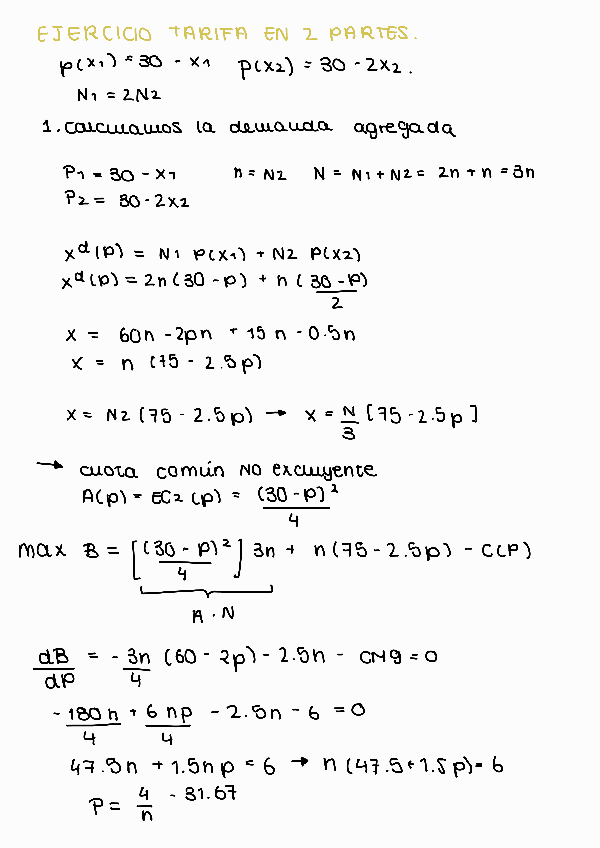 EJERCICIO TARIFA EN 2 PARTES.
p(x1) = 30 - x1 p(x2) = 30 - 2x2.
N1 = 2N2
1. Calculamos la demanda agregada
P1 = 30 - x1 n = N2 N = N1 + N2 = 2n + n = 3n
P2 = 30 - 2x2
x^d(p) = N1 p(x1) + N2 p(x2)
x^d(p) = 2n(30 - p) + n (30 - p)/2
x = 60n - 2pn + 15n - 0.5n
x = n (75 - 2.5p)
x = N2 (75 - 2.5p) → x = N/3 [75 - 2.5p]
→ cuota común NO excluyente
A(p) = EC2 (p) = (30 - p)²/4
max B = [(30 - p)²/4] 3n + n(75 - 2.5p) - C(P)
A · N
dB/dP = - 3n/4 (60 - 2p) - 2.5n - CMg = 0
- 180n/4 + 6np/4 - 2.5n - 6 = 0
47.5n + 1.5np = 6 → n(47.5 + 1.5p) = 6
P = 4/n - 31.67